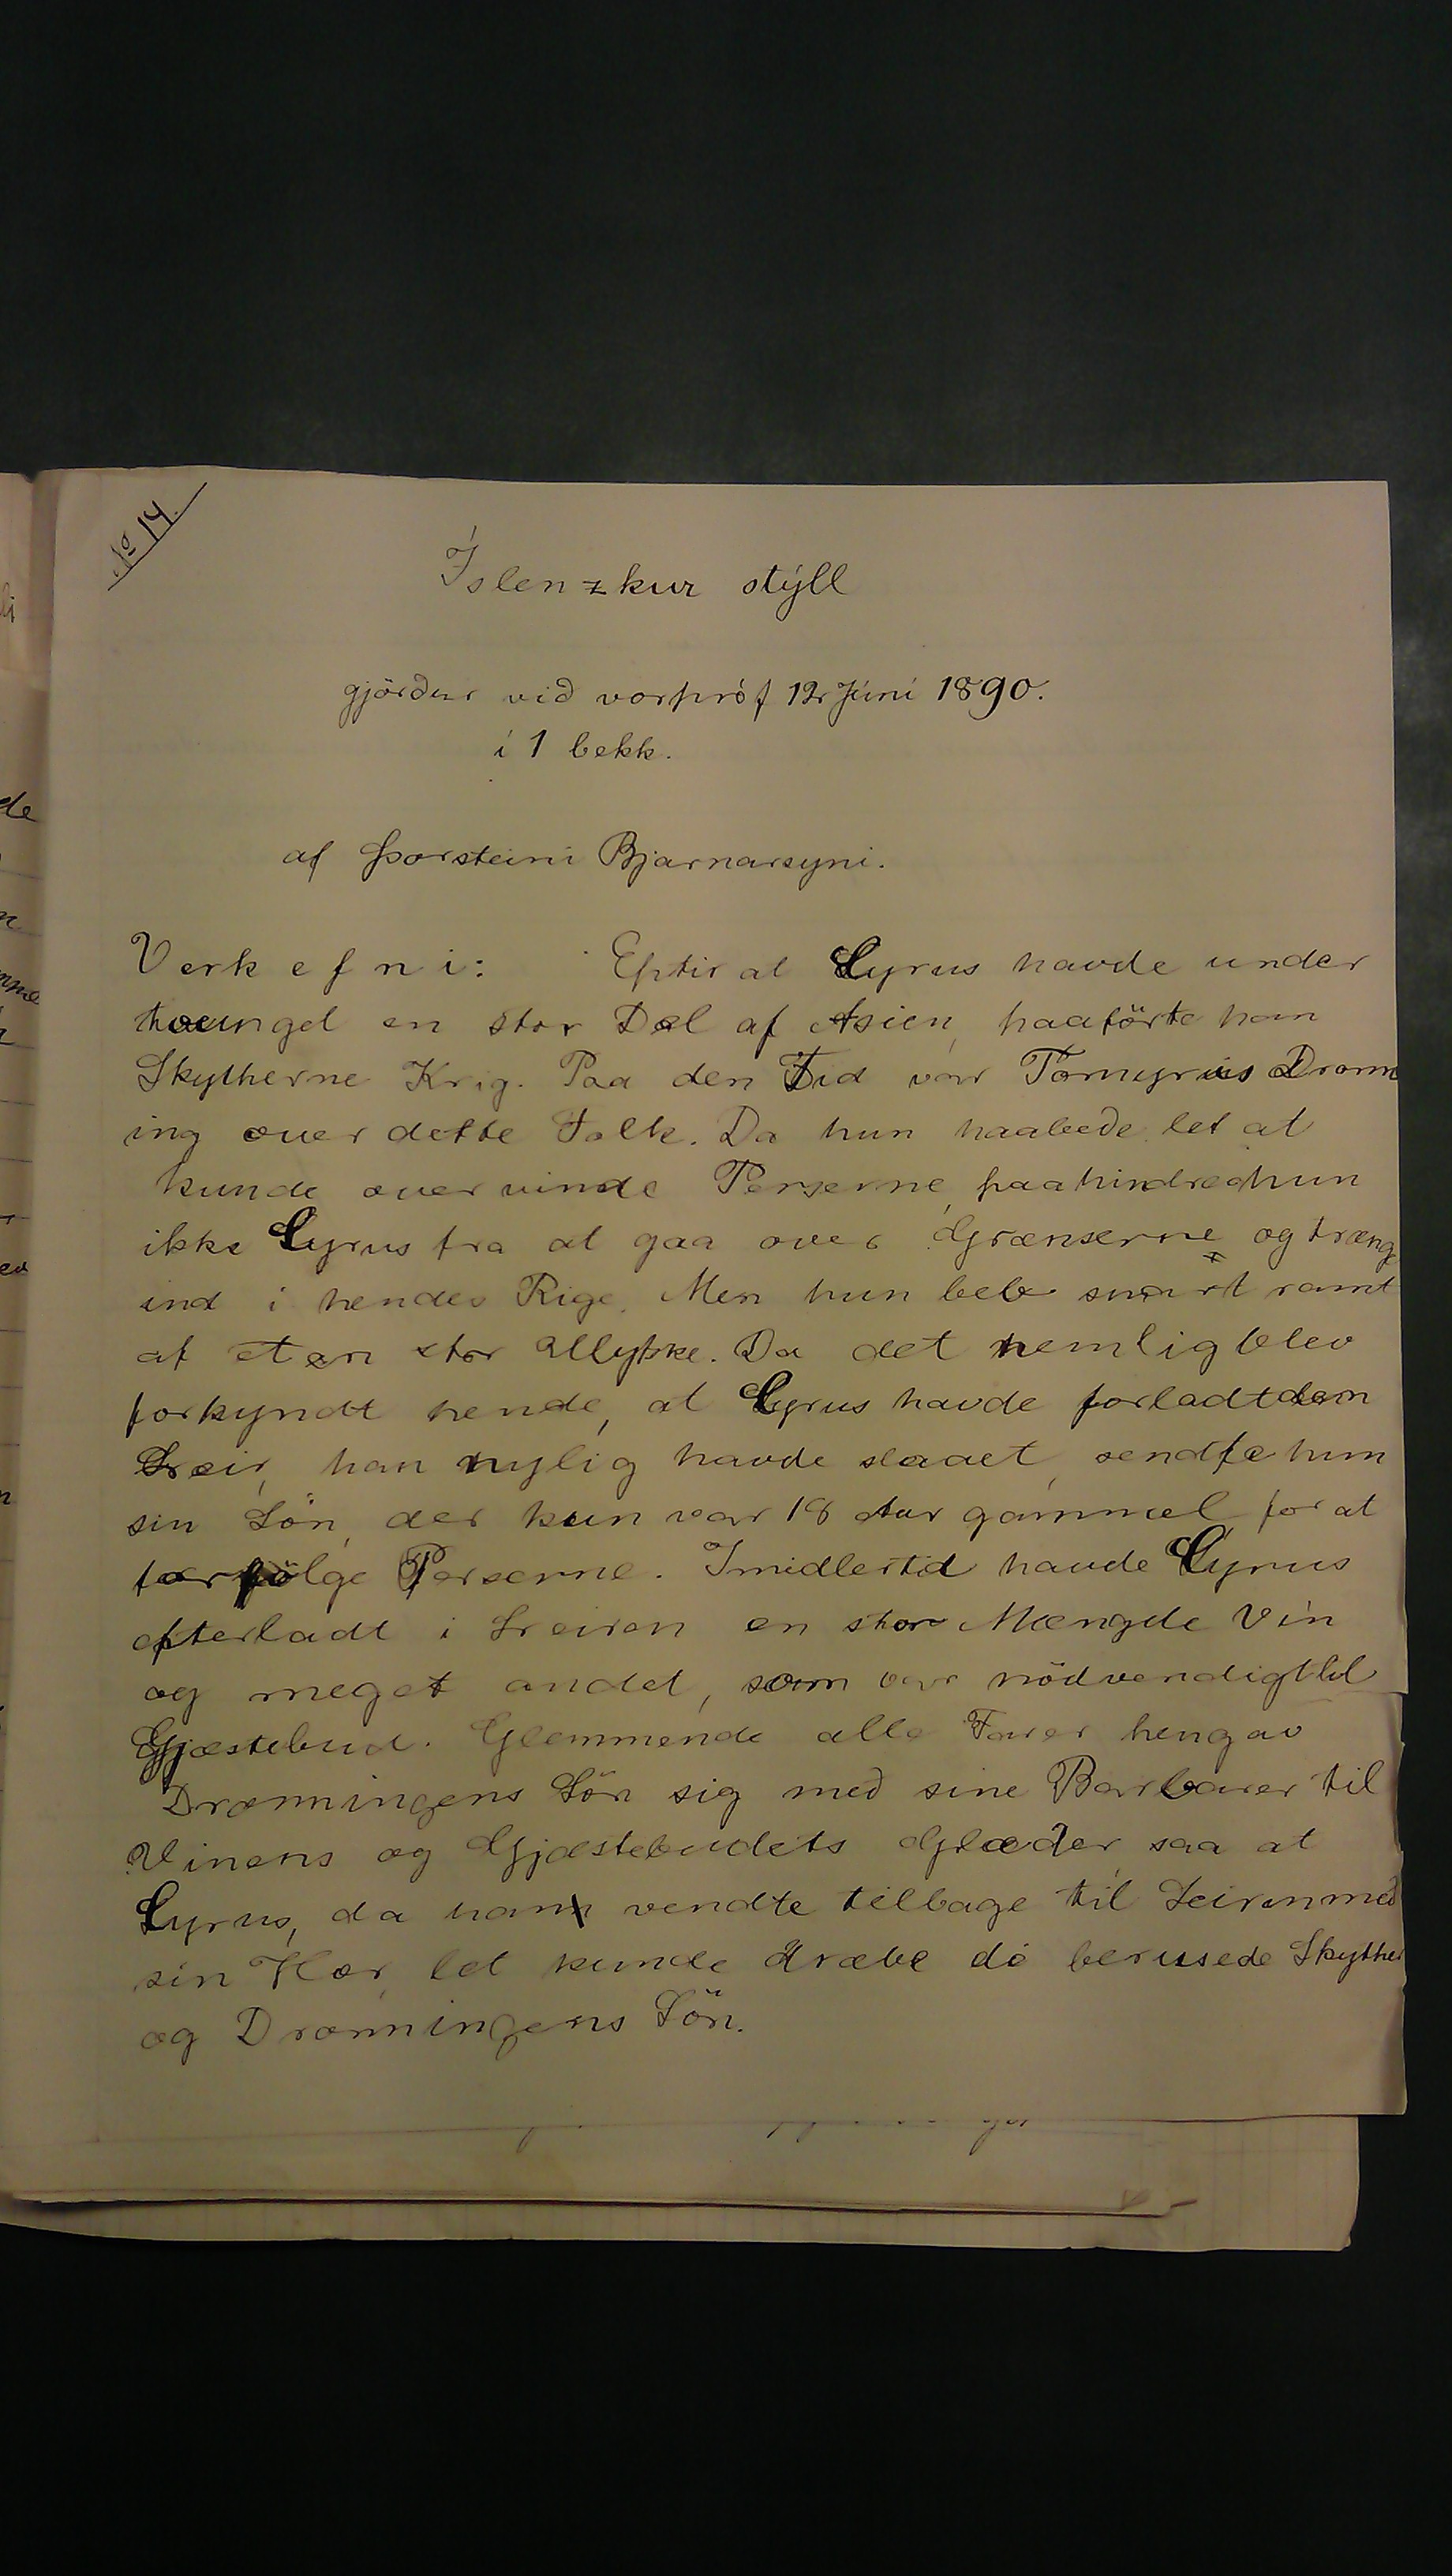 No 14.
Íslenzkur stýll
gjörður við vorpróf 12. Júní 1890.
í 1 bekk.
af Þorsteini Bjarnarsyni.
Verkefni: Eptir at Cyrus havde under
tvunget en stor Del af Asien, paaförte han
Skytherne Krig. Paa den Tid var Tomyris Dronn
ing over dette Folk. Da hun haabede let at
kunde overvinde Perserne, paahindred hun
ikke Cyrus fra at gaa over Grænserne og træng
ind i hendes Rige. Men hun beb snart ramt
af et en stor Ulykke. Da det nemlig blev
forkyndt hende, at Cyrus havde forladt den
Leir, han nylig havde slaaet, sendte hun
sin Sön, der kun var 18 Aar gammel for at
forfölge Perserne. Imidlertid havde Cyrus
efterladt i Leiren en stor Mængde Vin
og meget andet, som var nödvendigt til
Gjæstebud. Glemmende alle Farer hengav
Dronningens Sön sig med sine Barbarer til
Vinens og Gjæstebudets Glæder saa at
Cyrus, da han vendte tilbage til Leiren med
sin Hær, let kunde dræbe de berusede Skyther
og Dronningens Sön.